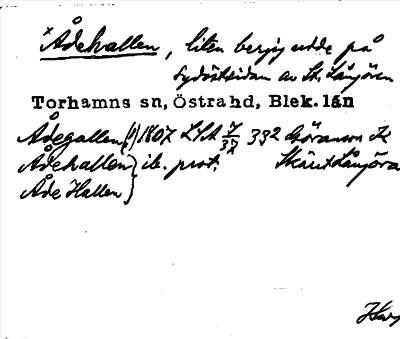 ×Ådehallen, liten bergig udde på
sydöstsidan av St. Långören
Torhamns sn, Östra hd, Blek. län
Ådegallen(!) 1807 LSA 7/37 332
Ådehallen } ib. prot. Skäret Långöra
Åde Hallen }